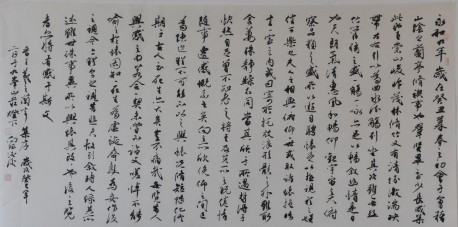 永和九年歲在癸丑暮春之初會于會稽
山陰之蘭亭脩禊事也羣賢畢至少長咸集
此地有崇山峻領茂林脩竹又有清流激湍映
帶左右引以為流觴曲水列坐其次雖無絲竹
管弦之盛一觴一詠亦足以暢叙幽情是日
也天朗氣清惠風和暢仰觀宇宙之大俯
察品類之盛所以遊目騁懷足以極視聽之娛
信可樂也夫人之相與俯仰一世或取諸懷抱悟
言一室之內或因寄所託放浪形骸之外雖趣
舍萬殊靜躁不同當其欣於所遇暫得於己
快然自足不知老之將至及其所之既惓情
隨事遷感慨係之矣向之所欣俛仰之間已
為陳迹猶不能不以之興懷況脩短隨化終
期於盡古人云死生亦大矣豈不痛哉每覽昔人
興感之由若合一契未嘗不臨文嗟悼不能
喻之於懷固知一死生為虛誕齊彭殤為妄作後
之視今亦由今之視昔悲夫故列叙時人錄其所
述雖世殊事異所以興懷其致一也後之覽
者亦將有感於斯文